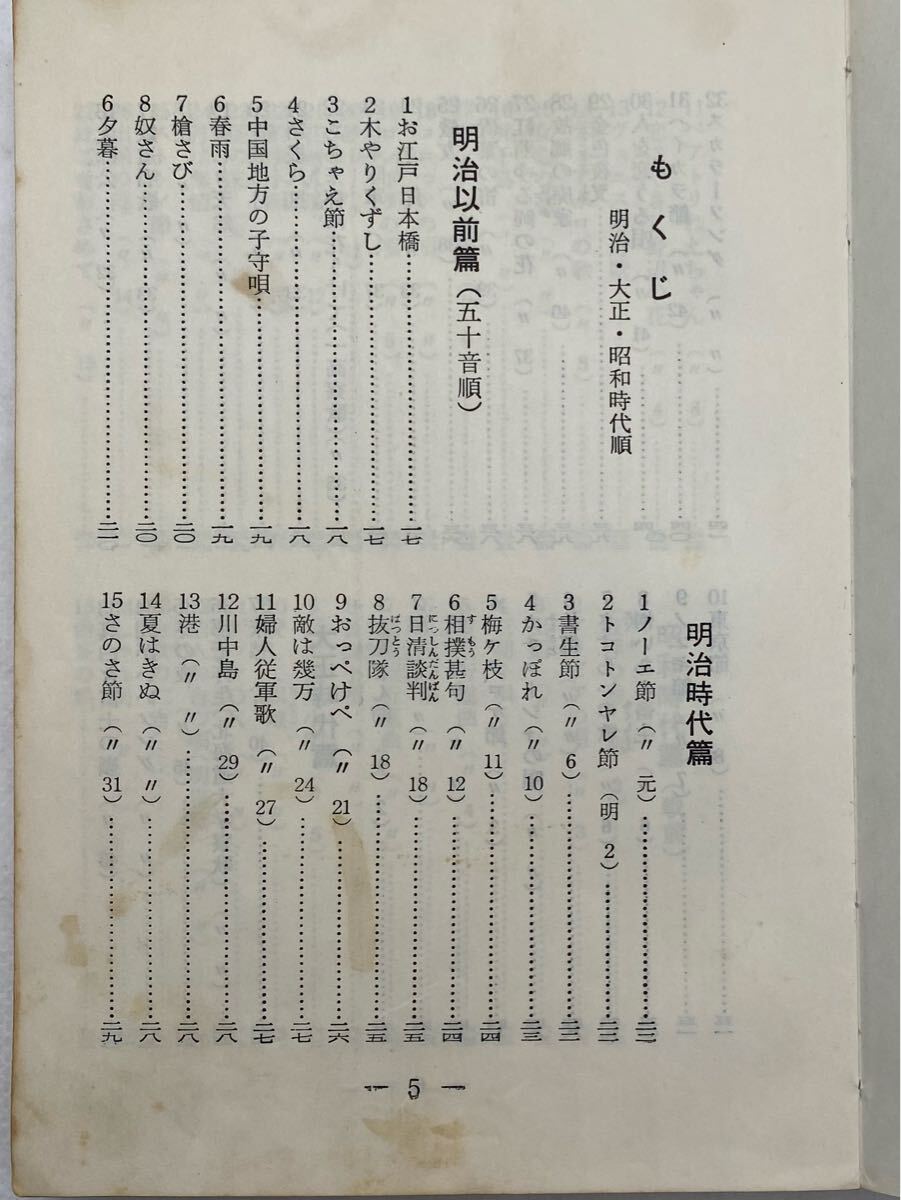 もくじ
明治・大正・昭和時代順
明治以前篇（五十音順）
1お江戸日本橋……一七
2木やりくずし……一七
3こちゃえ節……一八
4さくら……一八
5中国地方の子守唄……一九
6春雨……一九
7槍さび……二〇
8奴さん……二〇
6夕暮……二一
明治時代篇
1ノーエ節（〃元）……二二
2トコトンヤレ節（明2）……二二
3書生節（〃6）……二三
4かっぽれ（〃10）……二三
5梅ケ枝（〃11）……二四
6相撲甚句（〃12）……二四
7日清談判（〃18）……二五
8抜刀隊（〃18）……二五
9おっぺけぺ（〃21）……二六
10敵は幾万（〃24）……二七
11婦人従軍歌（〃27）……二七
12川中島（〃29）……二八
13港（〃〃）……二八
14夏はきぬ（〃〃）……二八
15さのさ節（〃31）……二九
— 5 —